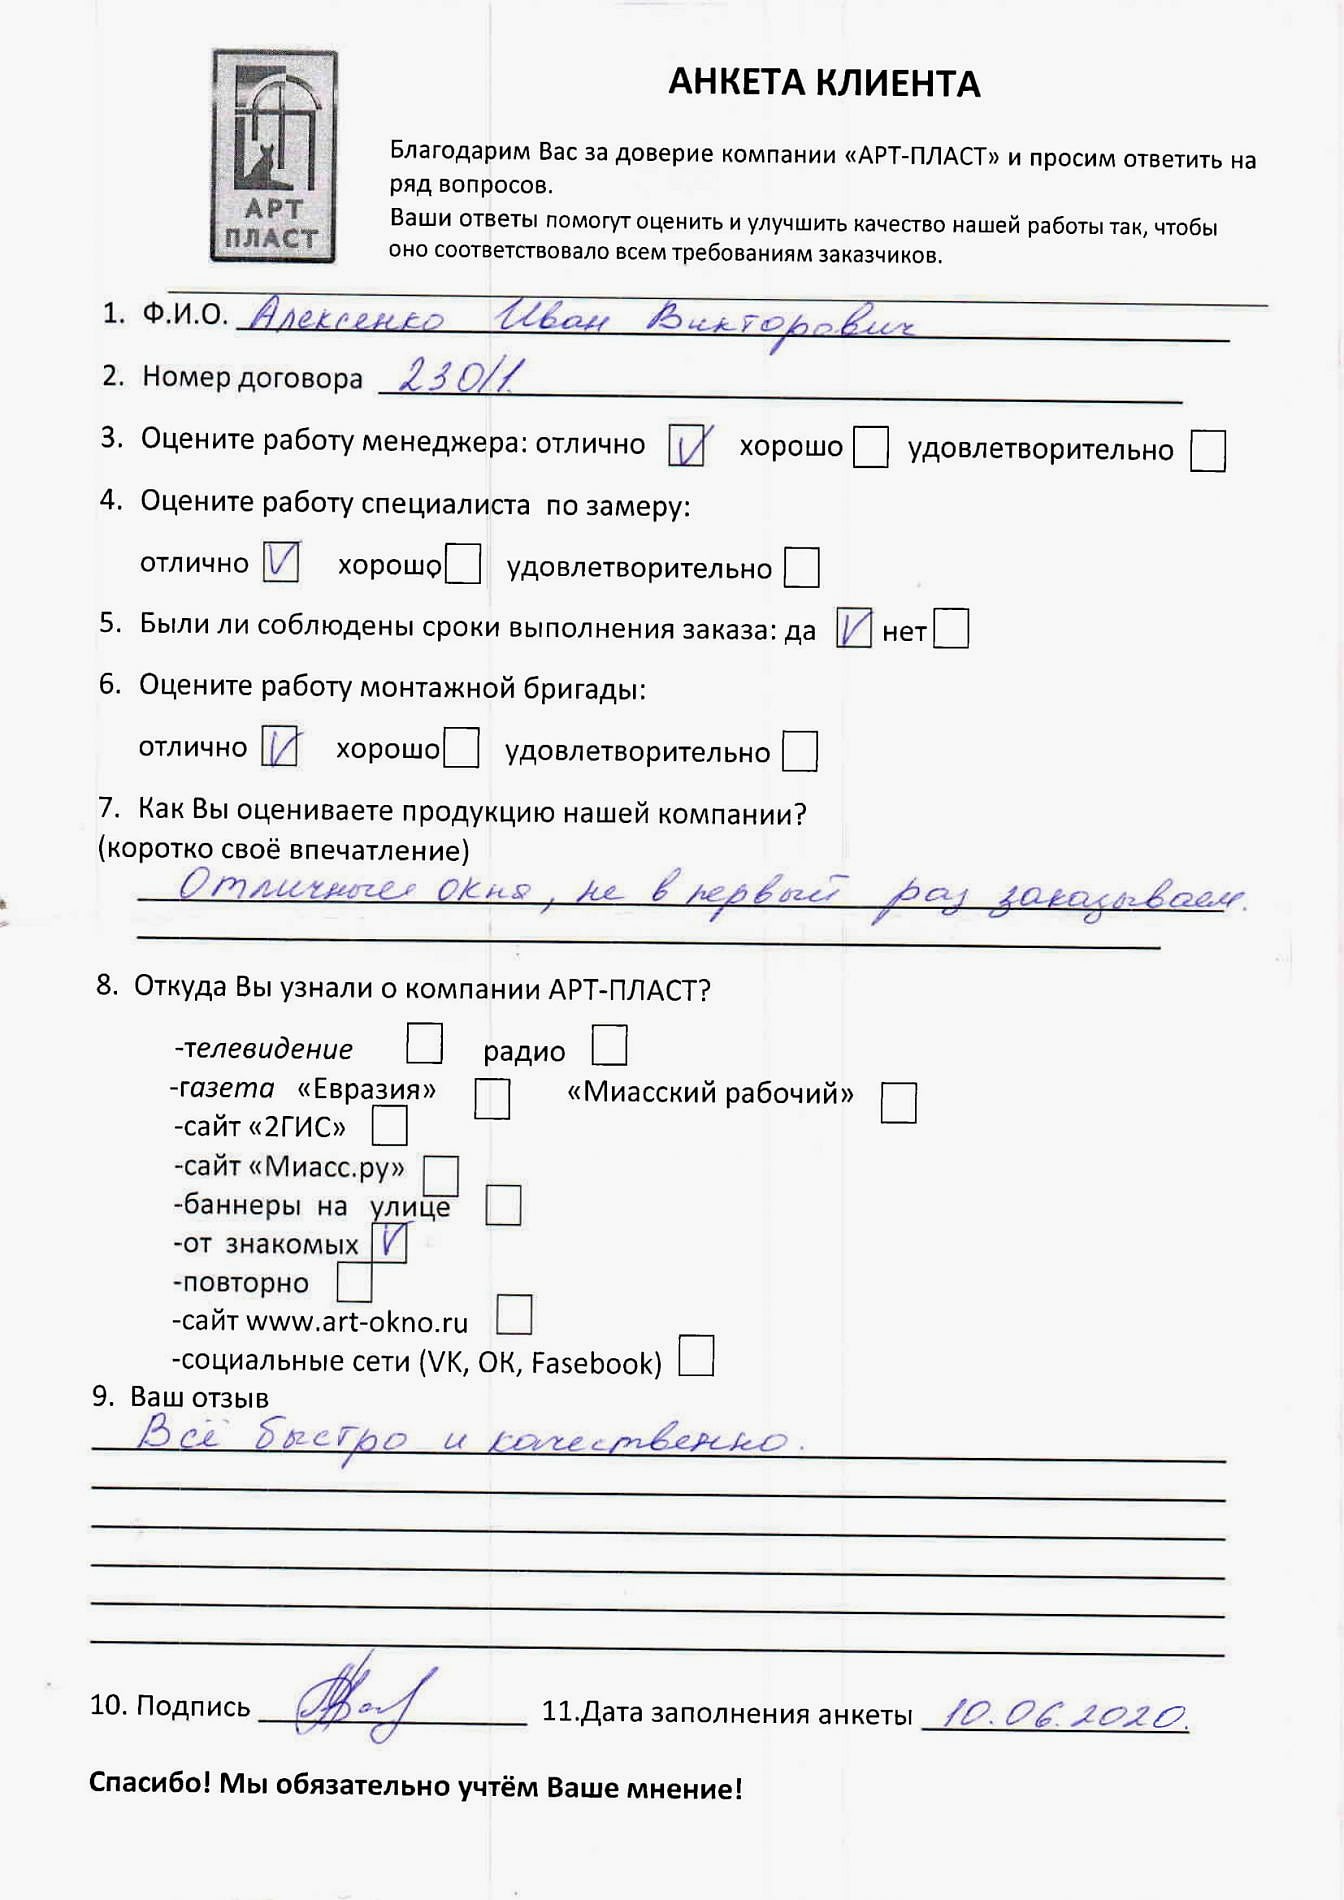 АРТ
ПЛАСТ
АНКЕТА КЛИЕНТА
Благодарим Вас за доверие компании «АРТ-ПЛАСТ» и просим ответить на
ряд вопросов.
Ваши ответы помогут оценить и улучшить качество нашей работы так, чтобы
оно соответствовало всем требованиям заказчиков.
1. Ф.И.О. Алексенко Иван Викторович
2. Номер договора 230/1.
3. Оцените работу менеджера: отлично V хорошо удовлетворительно
4. Оцените работу специалиста по замеру:
отлично V хорошо удовлетворительно
5. Были ли соблюдены сроки выполнения заказа: да V нет
6. Оцените работу монтажной бригады:
отлично V хорошо удовлетворительно
7. Как Вы оцениваете продукцию нашей компании?
(коротко своё впечатление)
Отличные окна, не в первый раз заказываем.
8. Откуда Вы узнали о компании АРТ-ПЛАСТ?
-телевидение радио
-газета «Евразия» «Миасский рабочий»
-сайт «2ГИС»
-сайт «Миасс.ру»
-баннеры на улице
-от знакомых V
-повторно
-сайт www.art-okno.ru
-социальные сети (VK, ОК, Fasebook)
9. Ваш отзыв
Всё быстро и качественно.
10. Подпись 11.Дата заполнения анкеты 10.06.2020.
Спасибо! Мы обязательно учтём Ваше мнение!